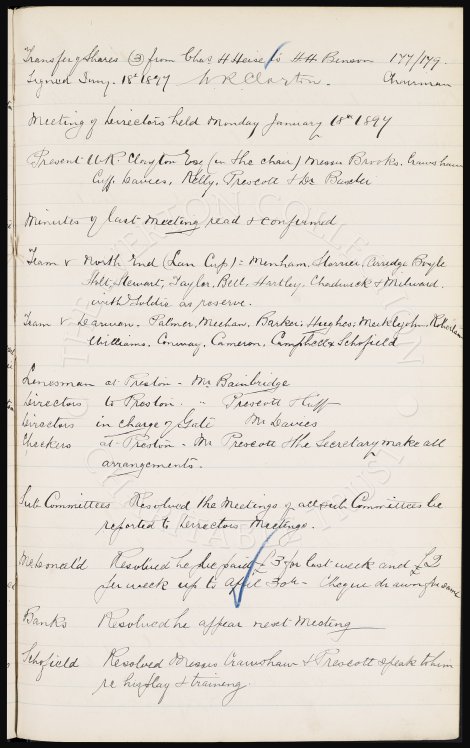 Transfer of Shares (3) from Chas H Heise to H H Benson 177/179.
Signed Jany. 18th 1897 W R Clayton. Chairman
Meeting of Directors held Monday January 18th 1897
Present W.R. Clayton Esq (in the chair) Messrs Brooks, Crawshaw
Cuff, Davies, Kelly, Prescott & Dr Baxter
Minutes of last Meeting read & confirmed
Team v North End (Lan Cup) = Menham, Storrier, Arridge Boyle
Holt, Stewart, Taylor, Bell, Hartley, Chadwick & Milward.
with Goldie as reserve.
Team v Darwen. Palmer, Meehan, Barker, Hughes, Meiklejohn, Robertson
Williams, Conway, Cameron, Campbell & Schofield
Linesman at Preston - Mr Bainbridge
Directors to Preston " Prescott & Cuff
Directors in charge of Gate Mr Davies
Checkers at Preston - Mr Prescott & the Secretary make all
arrangements.
Sub Committees Resolved the Meetings of all sub Committees be
reported to Directors Meetings.
McDonald Resolved he be paid £3 for last week and £2
per week up to April 30th - Cheque drawn for same
Banks Resolved he appear next Meeting
Schofield Resolved Messrs Crawshaw & Prescott speak to him
re his play & training
THE EVERTON COLLECTION
CHARITABLE TRUST